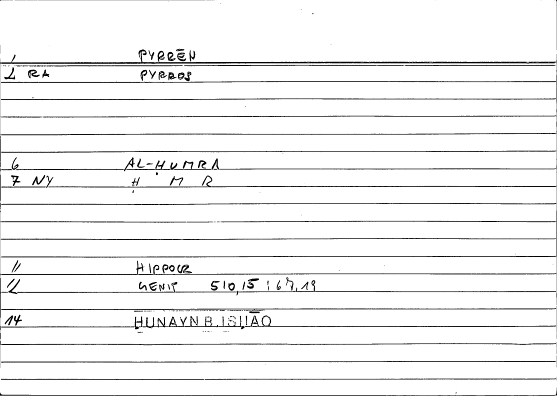 1 PYRRĒN
2 RA PYRROS
6 AL-ḤUMRA
7 NY Ḥ M R
11 HIPPOCR
12 GENIT 510,15 : 67,19
14 ḤUNAYN B. ISḤĀQ